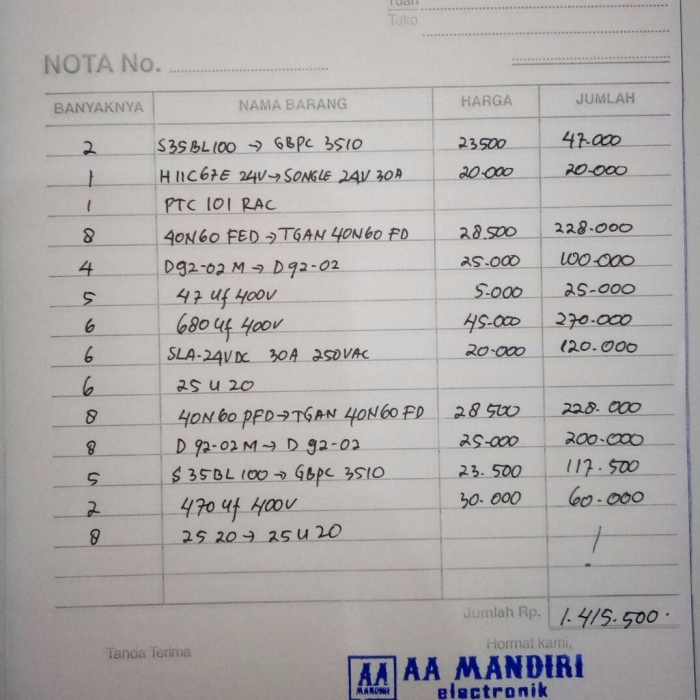 Tuan
Toko
NOTA No.
BANYAKNYA NAMA BARANG HARGA JUMLAH
2 S35BL100 → GBPC 3510 23500 47.000
1 H11C67E 24V → SONGLE 24V 30A 20.000 20.000
1 PTC 101 RAC
8 40N60 FED → TGAN 40N60 FD 28.500 228.000
4 D92-02 M → D92-02 25.000 100.000
5 47 uf 400V 5.000 25.000
6 680 uf 400V 45.000 270.000
6 SLA-24VDC 30A 250VAC 20.000 120.000
6 25 U 20
8 40N60 PFD → TGAN 40N60 FD 28 500 228.000
8 D 92-02 M → D 92-02 25.000 200.000
5 S 35BL 100 → GBPC 3510 23.500 117.500
2 470 uf 400V 30.000 60.000
8 25 20 → 25 U 20
Jumlah Rp. 1.415.500.
Tanda Terima Hormat kami,
AA MANDIRI AA MANDIRI
electronik